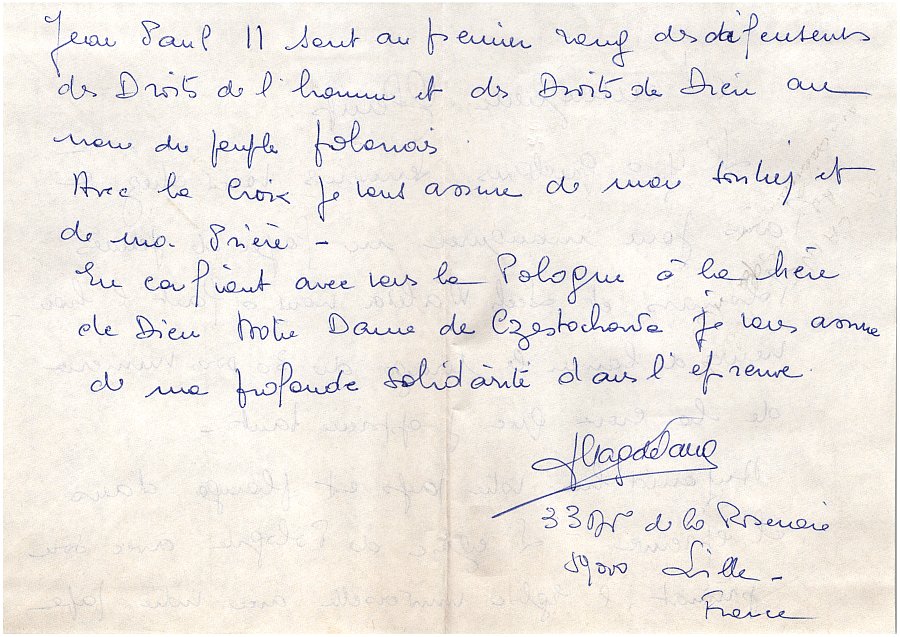 Jean Paul II sont au premier rang des défensents
des Droits de l'homme et des Droits de Dieu au
nom du peuple polonais.
Avec la Croix je vous assure de mon soutien et
de ma Prière -
En confiant avec vous la Pologne à la Mère
de Dieu Notre Dame de Częstochowa je vous assure
de ma profonde solidarité dans l'épreuve.
Magdelaine
33 Av de la Roseraie
59000 Lille -
France